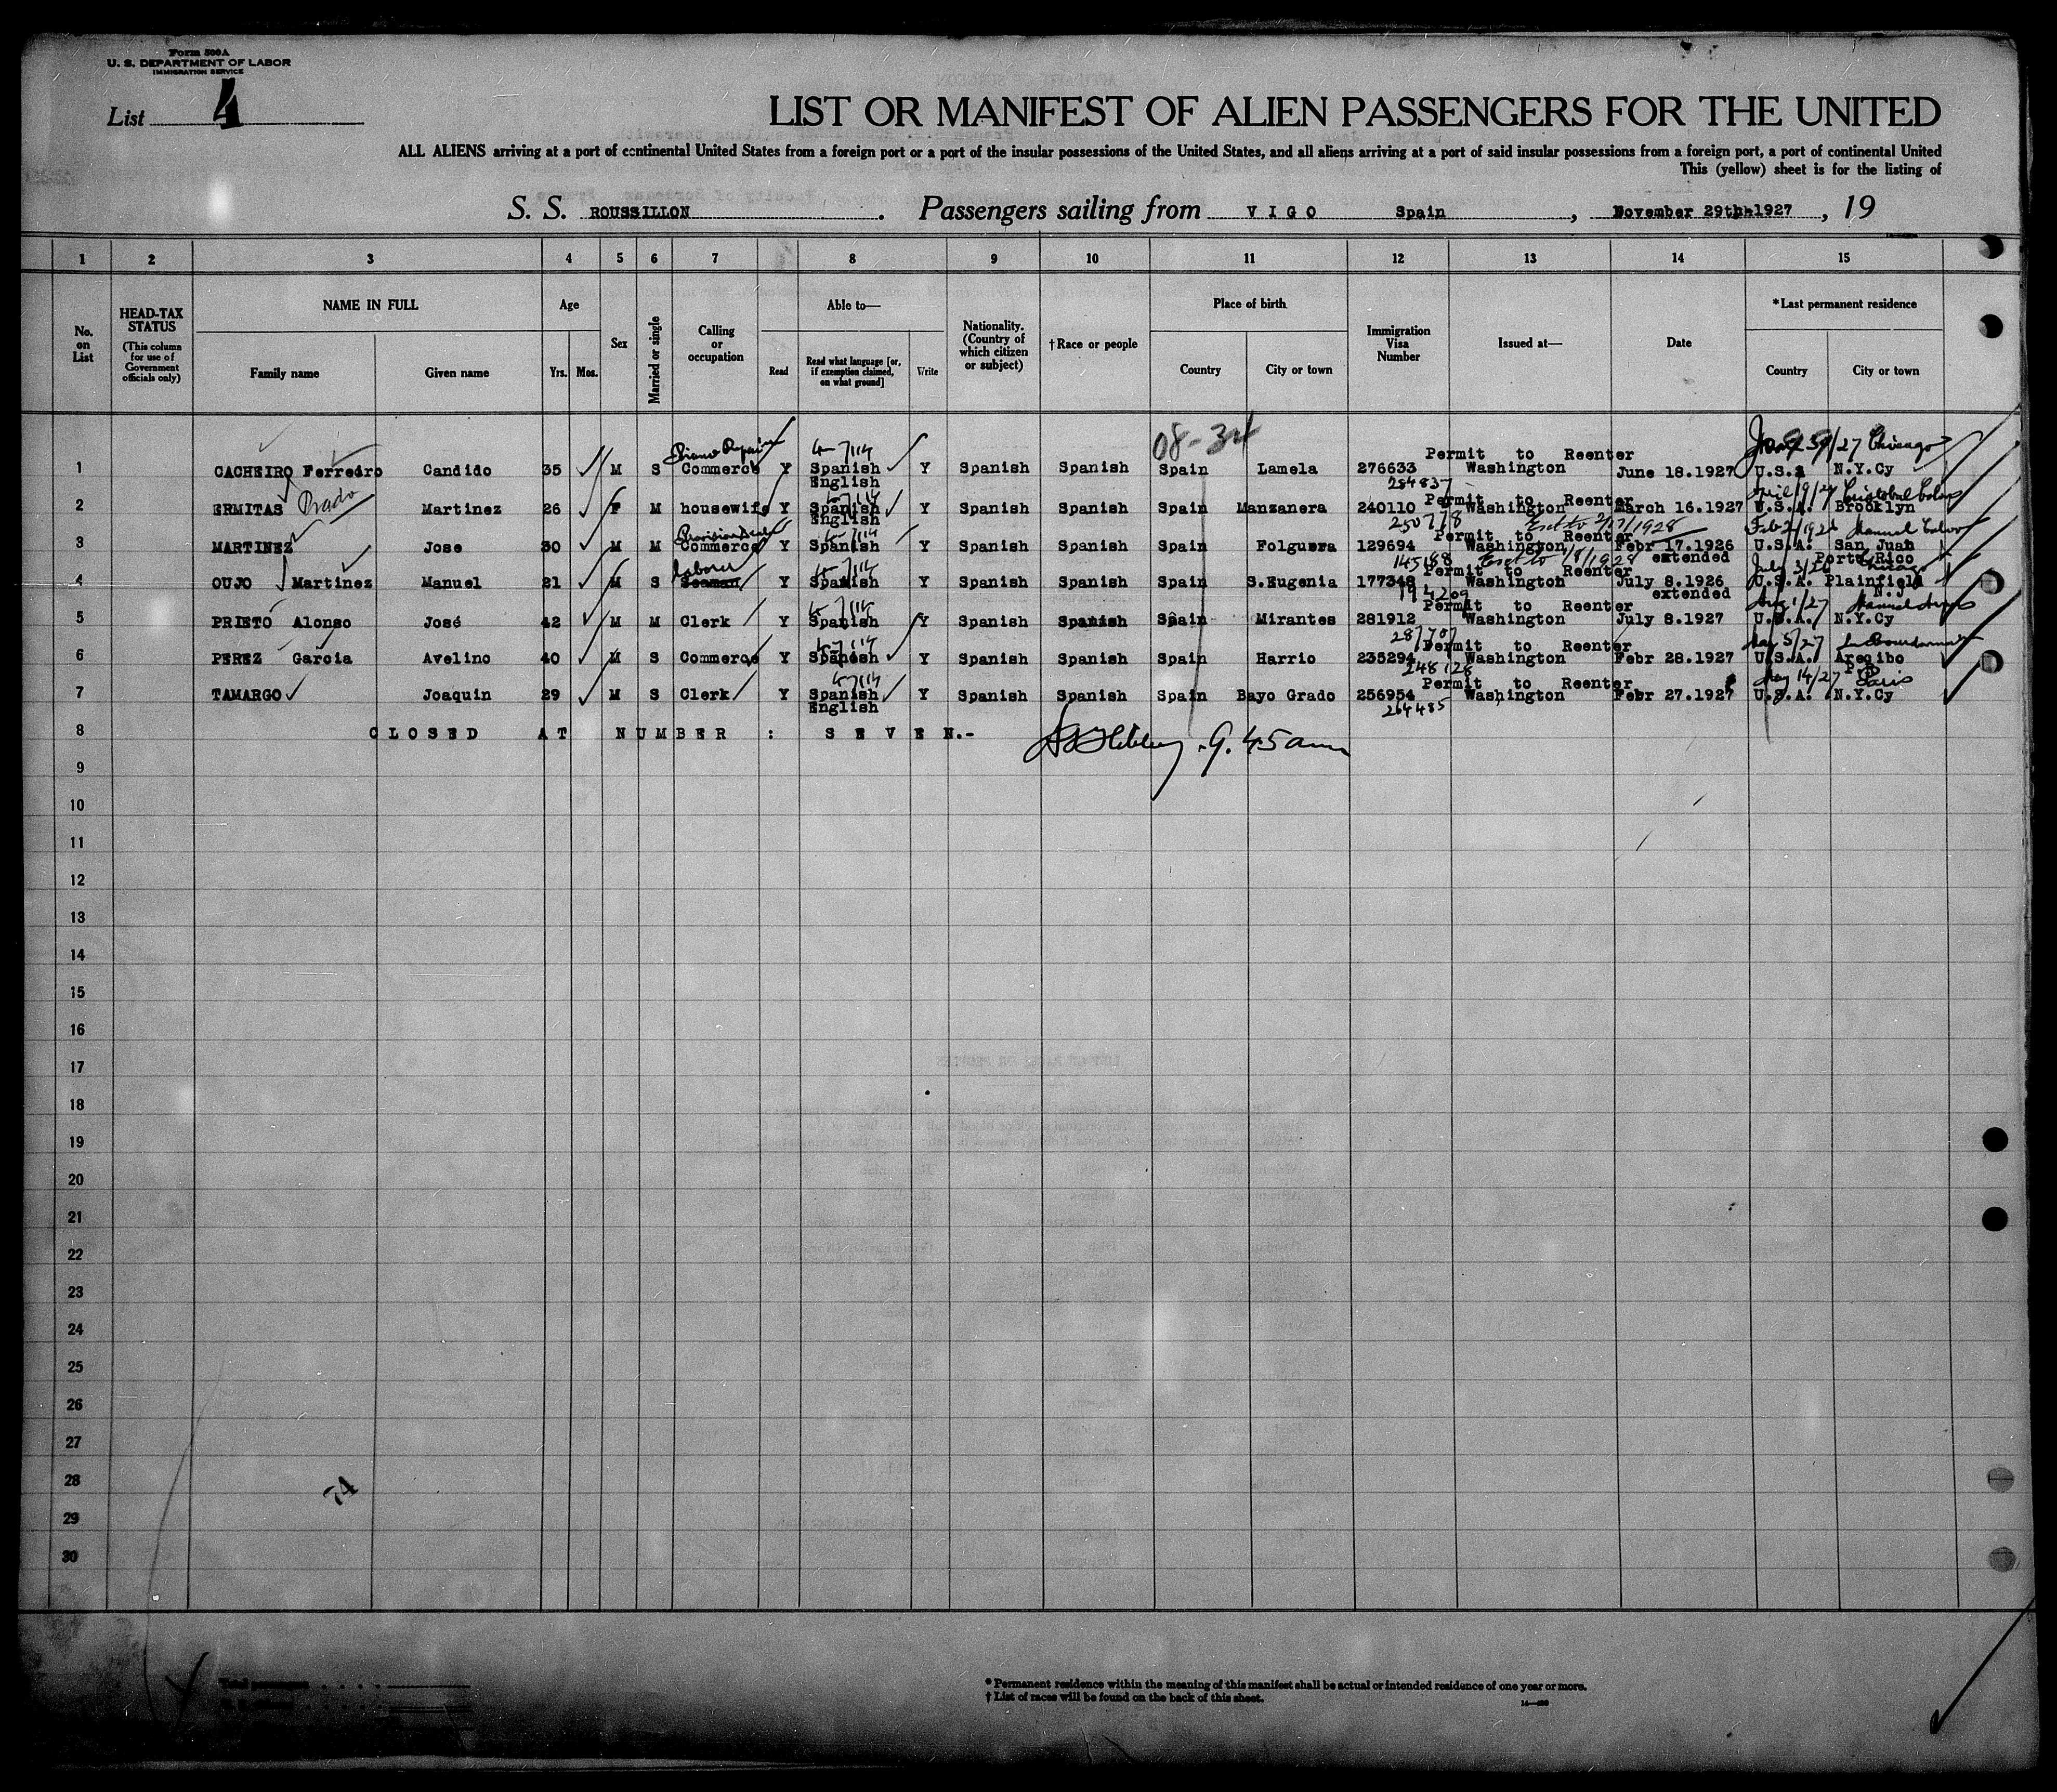 Form 500A
U. S. DEPARTMENT OF LABOR
IMMIGRATION SERVICE
List 4
LIST OR MANIFEST OF ALIEN PASSENGERS FOR THE UNITED
ALL ALIENS arriving at a port of continental United States from a foreign port or a port of the insular possessions of the United States, and all aliens arriving at a port of said insular possessions from a foreign port, a port of continental United
This (yellow) sheet is for the listing of
S. S. ROUSSILLON. Passengers sailing from VIGO Spain, November 29th 1927, 19
1 2 3 4 5 6 7 8 9 10 11 12 13 14 15
No. on List
HEAD-TAX STATUS (This column for use of Government officials only)
NAME IN FULL
Family name Given name
Age
Yrs. Mos.
Sex
Married or single
Calling or occupation
Able to—
Read
Read what language [or, if exemption claimed, on what ground]
Write
Nationality. (Country of which citizen or subject)
†Race or people
Place of birth
Country City or town
Immigration Visa Number
Issued at—
Date
*Last permanent residence
Country City or town
08-34
Piano Repair 4-7/14 Permit to Reenter /27 Chicago
1 CACHEIRO Ferredro Candido 35 M S Commerce Y Spanish Y Spanish Spanish Spain Lamela 276633 Washington June 18.1927 U.S.a N.Y.Cy
English 284837
Prado Permit to Reenter
2 ERMITAS Martinez 26 F M housewife Y Spanish Y Spanish Spanish Spain Manzanera 240110 Washington March 16.1927 U.S.A. Brooklyn
English 250778 Ext to 2/17/1928
Permit to Reenter
3 MARTINEZ Jose 30 M M Commerce Y Spanish Y Spanish Spanish Spain Folguera 129694 Washington Febr 17.1926 U.S.A. San Juan
145188 extended Porto Rico
laborer Permit to Reenter
4 OUJO Martinez Manuel 21 M S Seaman Y Spanish Y Spanish Spanish Spain S.Eugenia 177348 Washington July 8.1926 U.S.A. Plainfield
194209 extended N.J
Permit to Reenter
5 PRIETO Alonso José 42 M M Clerk Y Spanish Y Spanish Spanish Spain Mirantes 281912 Washington July 8.1927 U.S.A. N.Y.Cy
Permit to Reenter
6 PEREZ Garcia Avelino 40 M S Commerce Y Spanish Y Spanish Spanish Spain Harrio 235294 Washington Febr 28.1927 U.S.A. Arecibo
248128 Permit to Reenter May 14/27 Paris
7 TAMARGO Joaquin 29 M S Clerk Y Spanish Y Spanish Spanish Spain Bayo Grado 256954 Washington Febr 27.1927 U.S.A. N.Y.Cy
English 264485
8 CLOSED AT NUMBER : SEVEN.- 9.45 am
9
10
11
12
13
14
15
16
17
18
19
20
21
22
23
24
25
26
27
28
74
29
30
Total passengers
* Permanent residence within the meaning of this manifest shall be actual or intended residence of one year or more.
† List of races will be found on the back of this sheet.